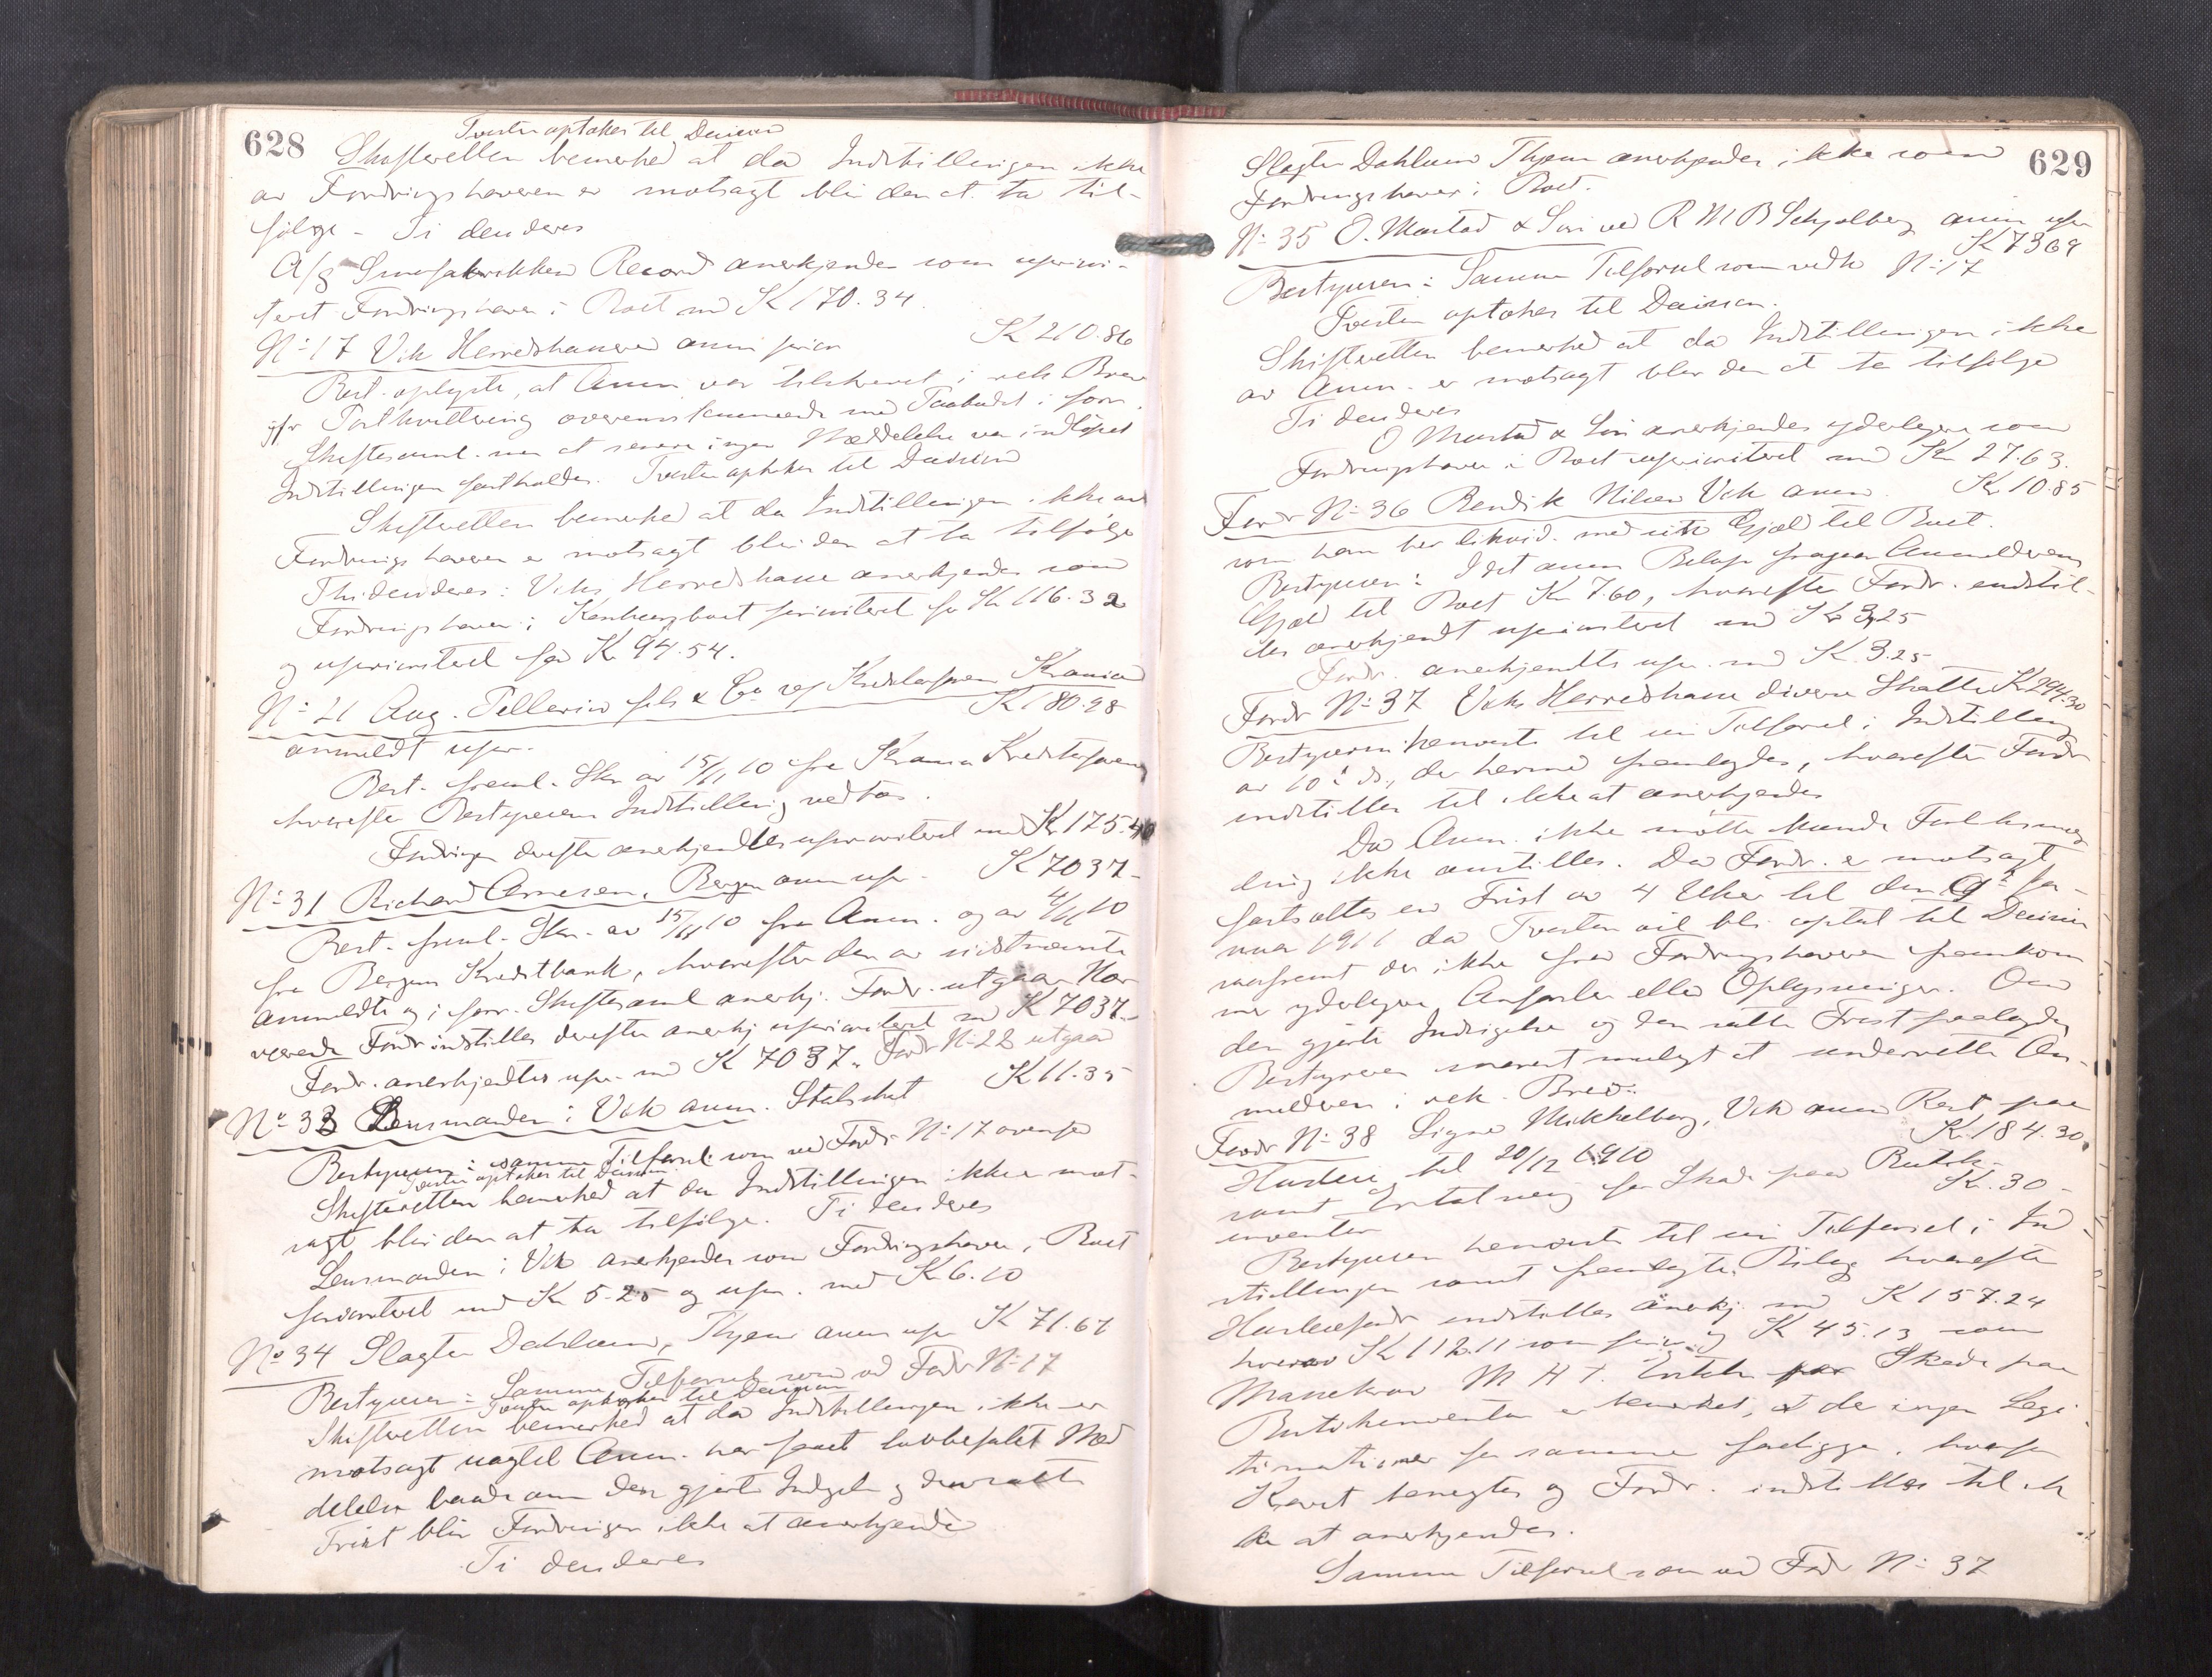 628
Tvisten optokes til Decision
Skifteretten bemerked at da Indstillingen ikke
av Fordringshaveren er motsagt blir den at ta til-
følge - Ti denderes
A/s Smørfabrikken Record anerkjendes som uprivi-
tert Fordringshaver i Boet med K 170.34.
No 17 Vik Herredskasse anm prior K 210.86
Best. oplyste, at Anm. var tilskrevet i rek Brev
jfr Postkvittering overensstemmende med Paabudet i forr.
Skiftesaml. men at senere ingen Meddelelse var indløpet
Indstillingen fastholdes. Tvisten optokes til Decision
Skifteretten bemerked at da Indstillingen ikke av
Fordringshaveren er motsagt blir den at ta tilfølge
Thi denderes: Viks Herredskasse anerkjendes som
Fordringshaver i Konkursboet prioritert for Kr 116.32
og uprioritert for K 94.54.
No 21 Aug. Pellerin fils & Co ved Kreditorforen Krania
K 180.98
anmeldt upr.
Best. freml. Skr av 15/11 10 fra Krania Kreditorforening
hvorefter Bestyrerens Indstilling vedtas.
Fordringen derefter anerkjendtes uprioritert med Kr 175.40
No 31 Richard Arnesen, Bergen anm upr. K 7037-
Best. freml. Skr. av 15/11 10 fra Anm. og av 4/11 10
fra Bergens Kreditbank, hvorefter den av sidstnævnte
anmeldte og i forr. Skiftesaml anerkj. Fordr. utgaar Nær
værende Fordr indstilles derefter anerkj uprioritert med K 7037.-
Fordr. anerkjendtes upr. med K 7037.- Fordr No 28 utgaar
No 33 Lensmanden i Vik anm. Statsskat K 11.35
Bestyreren: samme Tilførsel som ved Fordr No 17 ovenfor
Tvisten optokes til Decision.
Skifteretten bemerked at da Indstillingen ikke er mot-
sagt blir den at ta tilfølge. Ti denderes
Lensmanden i Vik anerkjendes som Fordringshaver i Boet
prioritert med Kr 5.25 og upr. med Kr 6.10
No 34 Slagter Dahlum, Thjem anm upr K 71.67
Bestyreren: Samme Tilførsel som ved Fordr No 17
Tvisten optokes til Decision
Skifteretten bemerked at da Indstillingen ikke er
motsagt uagtet Anm. har faaet lovbefalet Med
delelse baade om den gjorte Indsigelse og den satte
Frist blir Fordringen ikke at anerkjende
Ti denderes
629
Slagter Dahlum Thjem anerkjendes ikke som
Fordringshaver i Boet.
No 35 O. Mustad & Søn ved R M B Schjølberg anm upr
K 73 69
Bestyreren: Samme Tilførsel som vedk No 17
Tvisten optokes til Decision.
Skifteretten bemerked at da Indstillingen ikke
av Anm. er motsagt blir den at ta tilfølge
Ti denderes
O Mustad & Søn anerkjendes yderligere som
Fordringshaver i Boet uprioritert med Kr 27.63.
Fordr No 36 Rendik Nilsen Vik anm. Kr 10.85
som han har likvid. med sit Gjæld til Boet.
Bestyreren: I det anm Beløp fragaar Anmelderens
Gjæld til Boet Kr 7.60, hvorefter Fordr. indstil-
les anerkjendt uprioritert med Kr 3,25
Fordr. anerkjendtes upr. med K. 3.25
Fordr No 37 Viks Herredskasse diverse Skatte K 294.30
Bestyreren henviste til sin Tilførsel i Indstilling
av 10' ds., der herved fremlegdes, hvorefter Fordr
indstilles til ikke at anerkjendes
Da Anm. ikke møtte kunde Forliksmæg
ling ikke anstilles. Da Fordr. er motsagt
fastsattes en Frist av 4 Uker til den 9' Ja-
nuar 1911 da Tvisten vil bli optat til Decision
saafremt der ikke fra Fordringshaveren fremkom
mer yderligere Anførsler eller Oplysninger. Om
den gjorte Indsigelse og den satte Frist paalagdes
Bestyreren snarest muligt at underrette An-
melderen i rek. Brev.
Fordr No 38 Signe Mikkelborg, Vik anm Rest paa
K. 184.30.
Husleie til 20/12 1910
samt Erstatning for Skade paa Butik-
inventar K. 30-
Bestyreren henviste til sin Tilførsel i Ind
stillingen samt fremlagte Bilag hvorefter
Husleiefordr indstilles anerkj. med K 157.24
hvorav Kr 112.11 som prior. og K 45.13 som
Massekrav M H T. Erstatn for Skade paa
Butikinventar er bemerket, at der ingen Legi
timationer for samme foreligger, hvorfor
Kravet benegtes og Fordr. indstilles til ik
ke at anerkjendes.
Samme Tilførsel som ved Fordr No 37